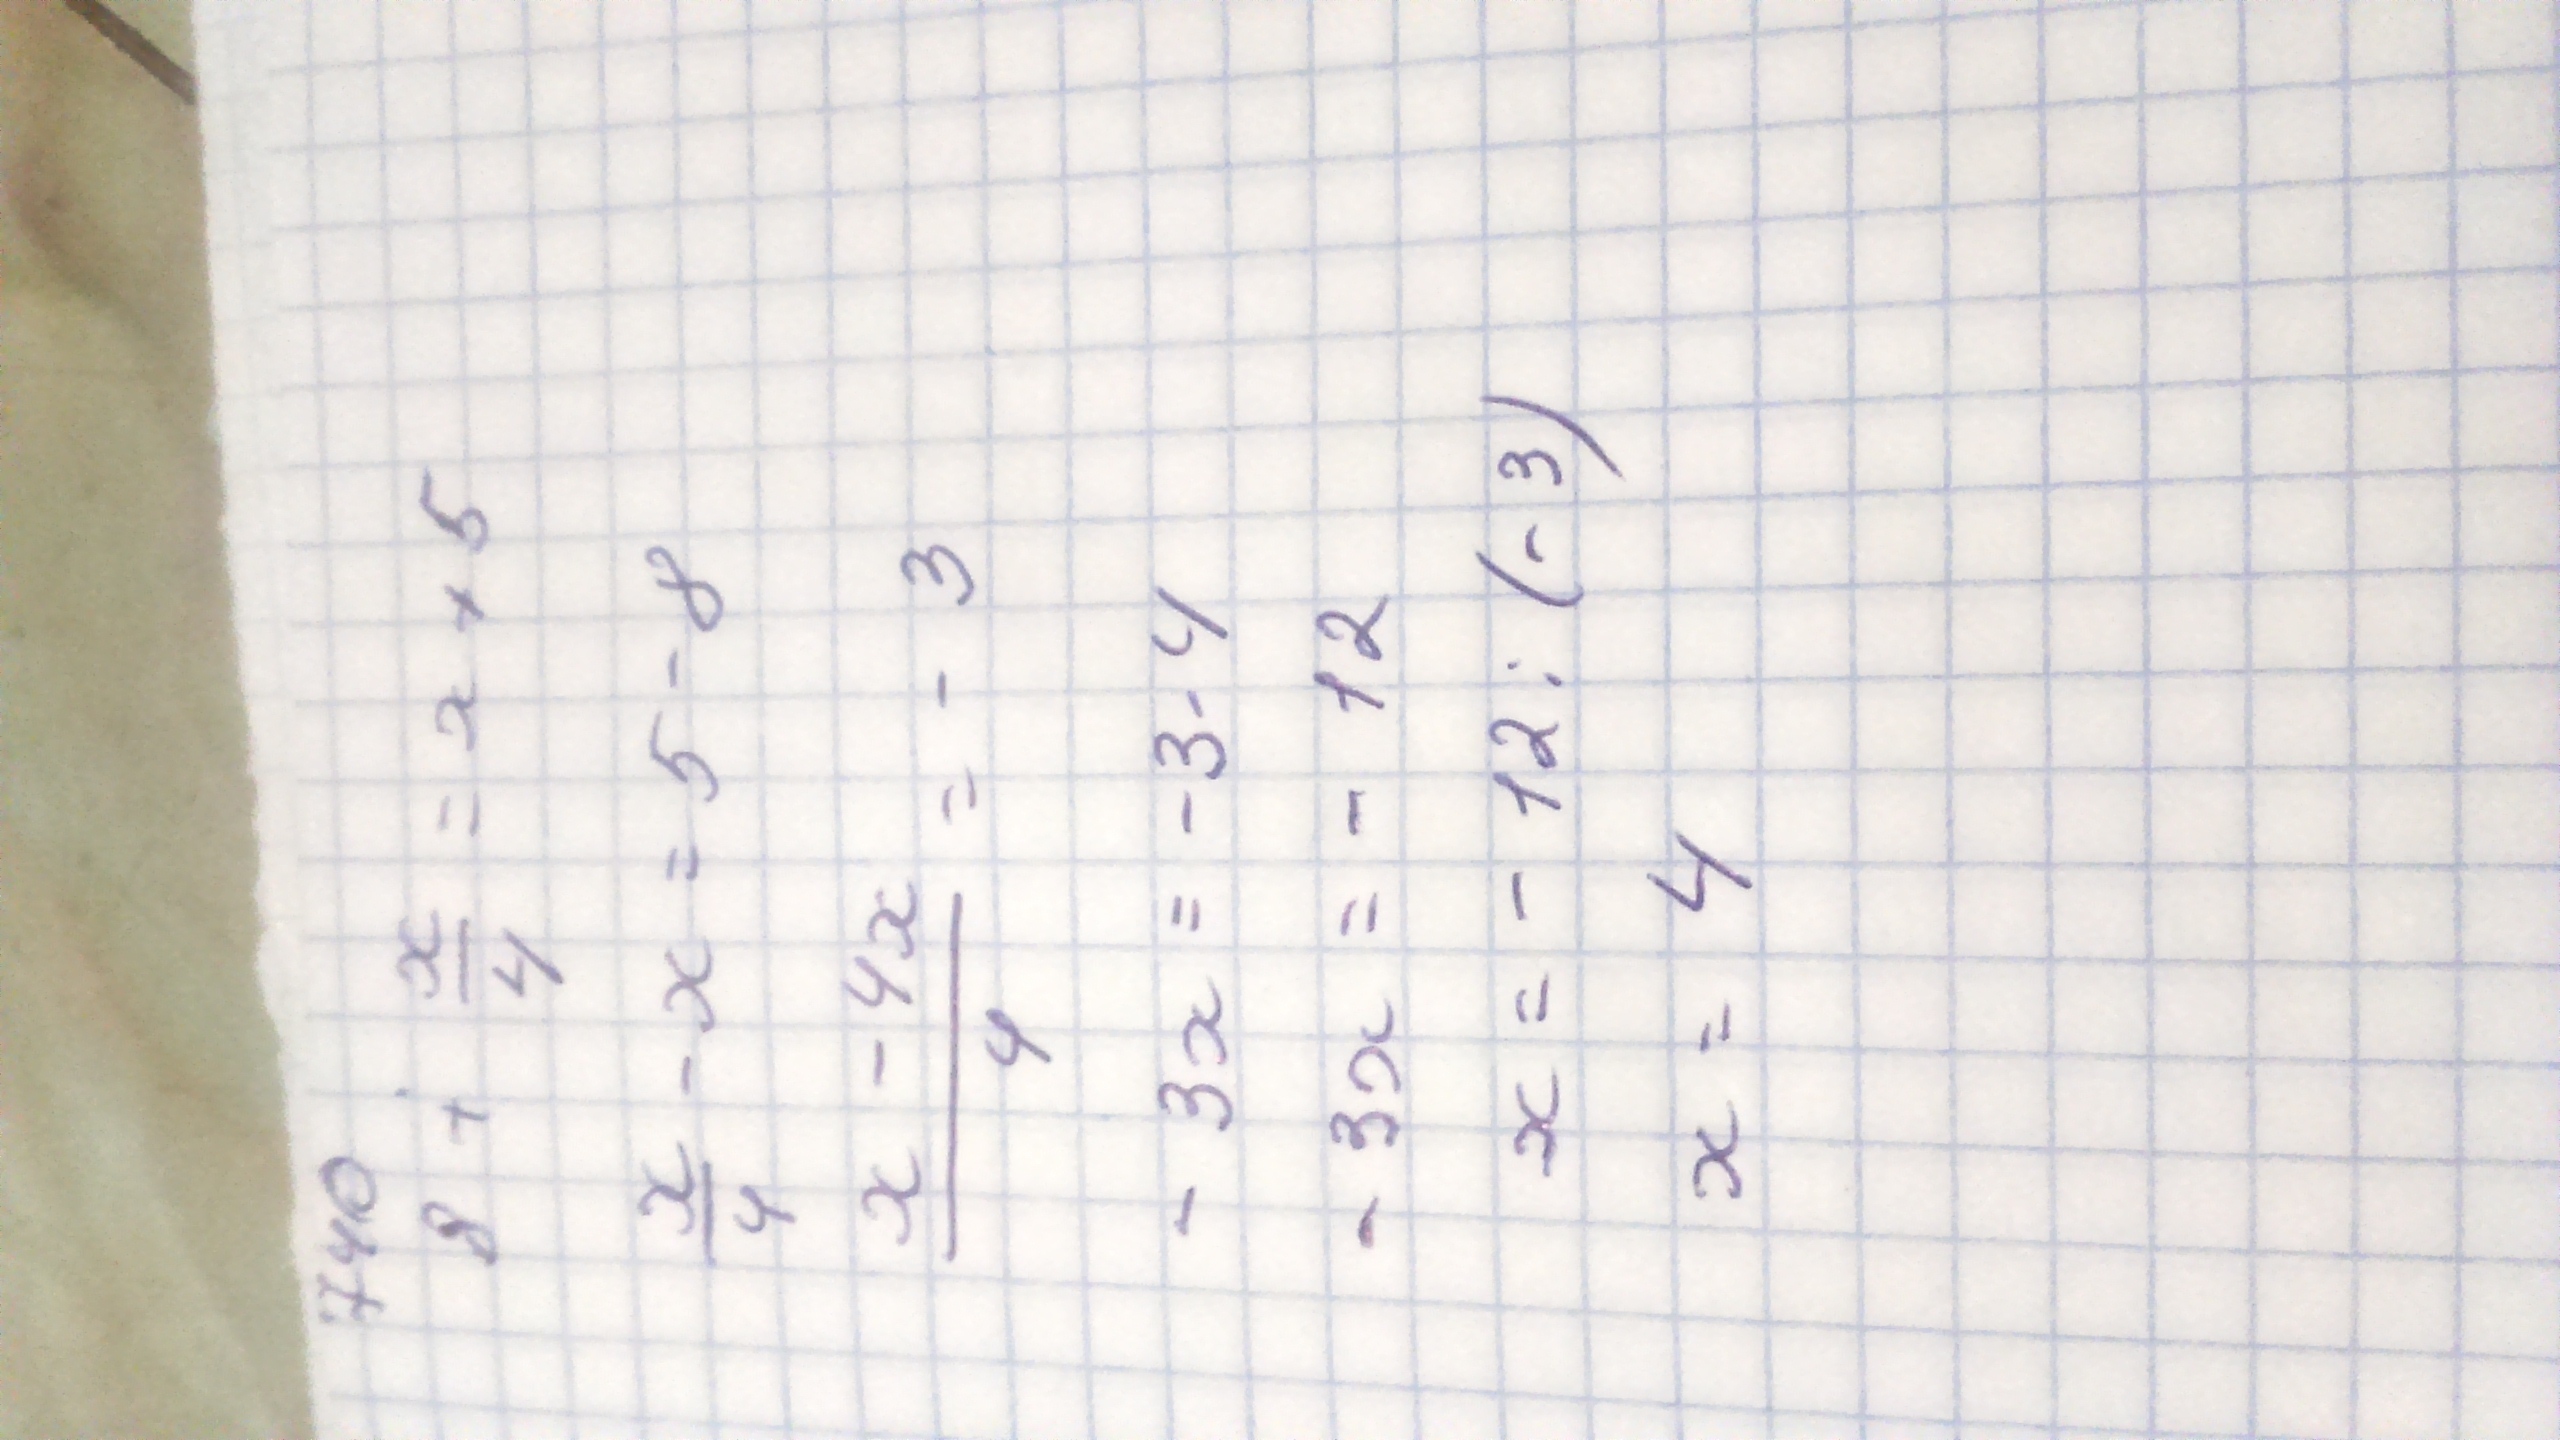 740
8 + x/4 = x + 5
x/4 - x = 5 - 8
(x - 4x)/4 = - 3
- 3x = - 3 · 4
- 3x = - 12
x = - 12 : (- 3)
x = 4